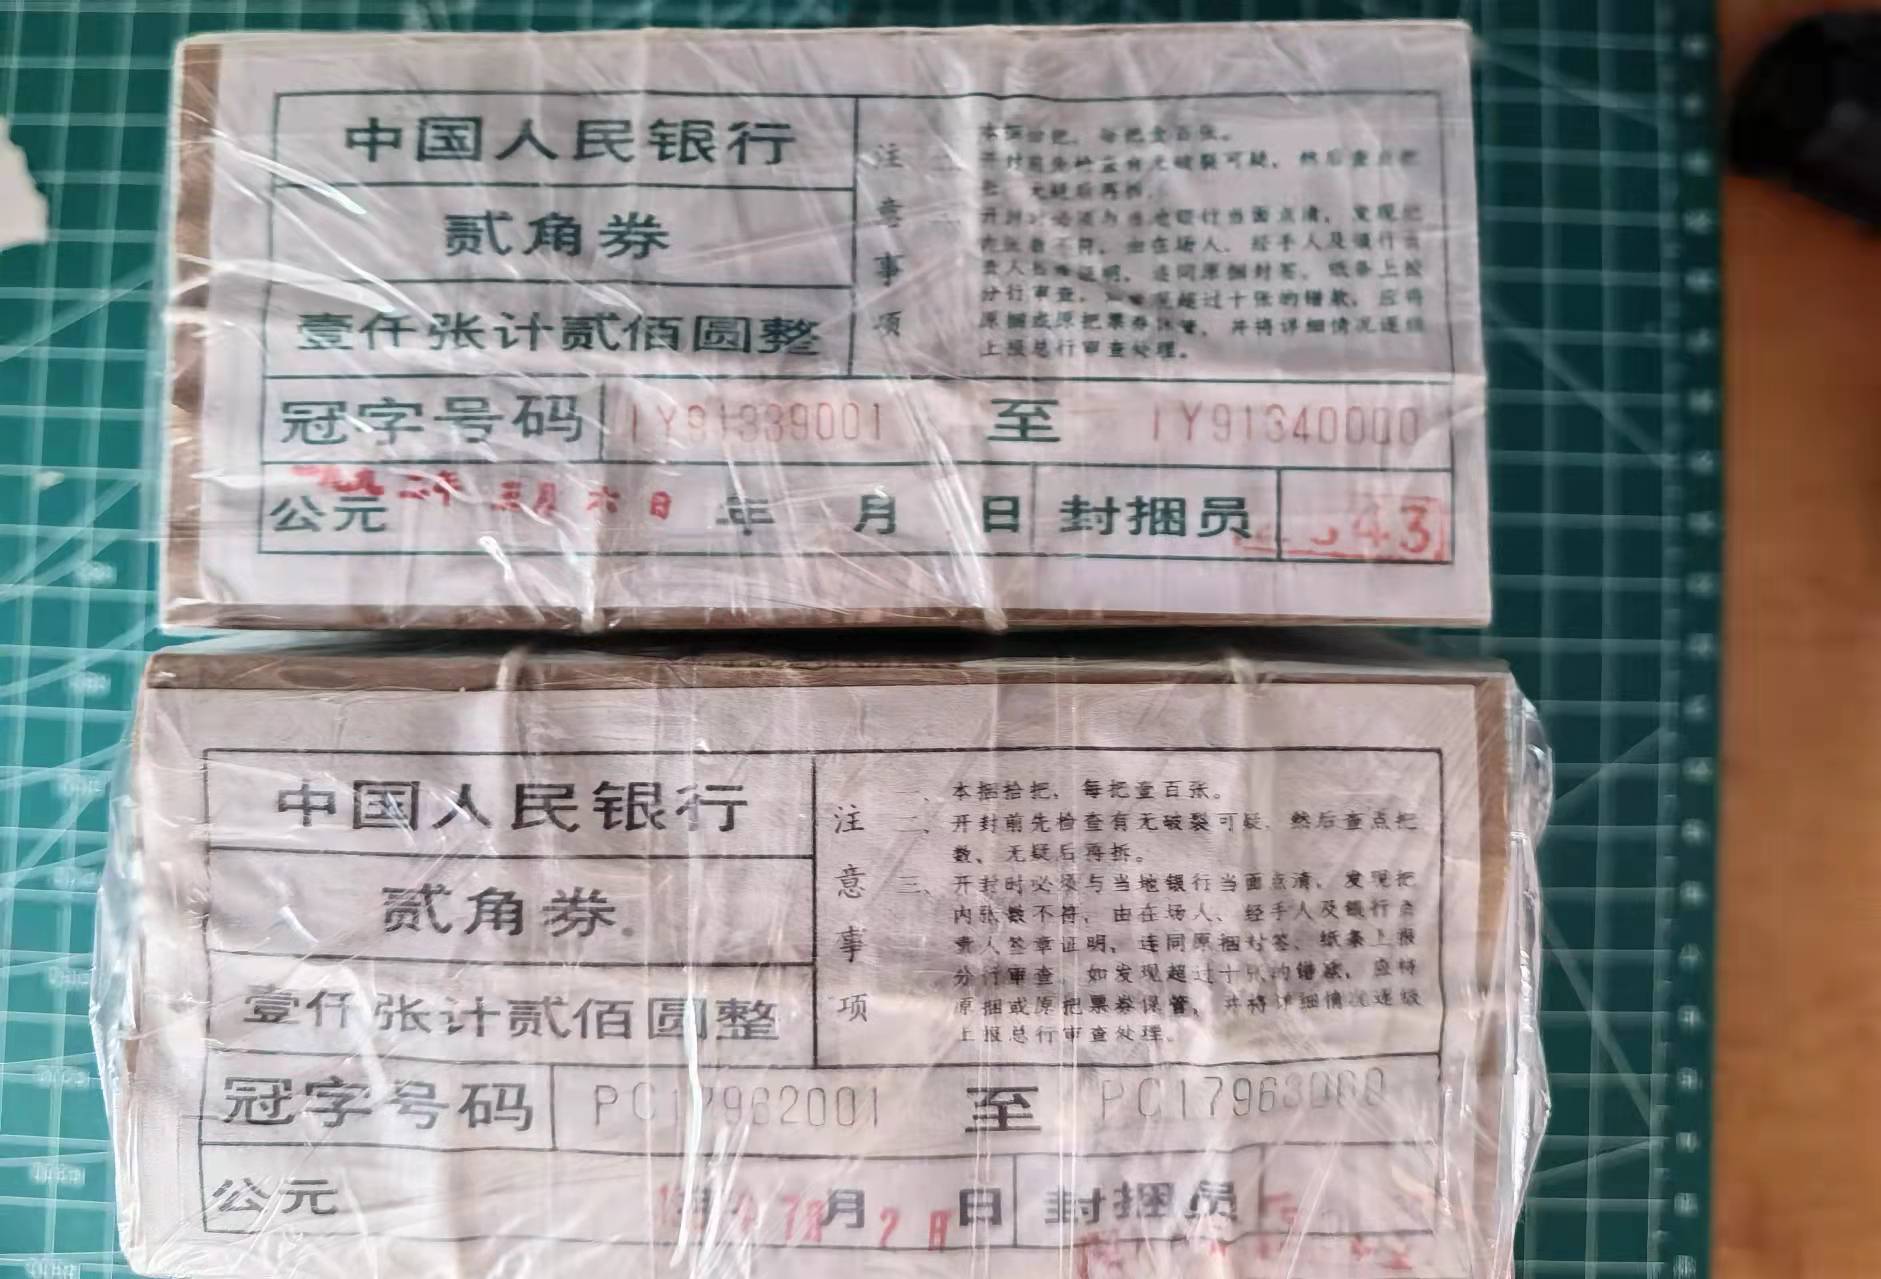 中国人民银行
贰角券
壹仟张计贰佰圆整
注意事项
本捆拾把，每把壹百张。
开封前先检查有无破裂可疑，然后查点把
数、无疑后再拆。
开封时必须与当地银行当面点清，发现把
内张数不符，由在场人、经手人及银行负
责人签章证明，连同原捆封签、纸条上报
分行审查。如发现超过十张的错款，应将
原捆或原把票券保管，并将详细情况逐级
上报总行审查处理。
冠字号码 IY91339001 至 IY91340000
公元 一九九二年 三月 六日 年 月 日 封捆员 43
中国人民银行
贰角券
壹仟张计贰佰圆整
注意事项
一、本捆拾把，每把壹百张。
二、开封前先检查有无破裂可疑，然后查点把
数、无疑后再拆。
三、开封时必须与当地银行当面点清，发现把
内张数不符，由在场人、经手人及银行负
责人签章证明，连同原捆封签、纸条上报
分行审查。如发现超过十张的错款，应将
原捆或原把票券保管，并将详细情况逐级
上报总行审查处理。
冠字号码 PC17962001 至 PC17963000
公元 月 2日 日 封捆员